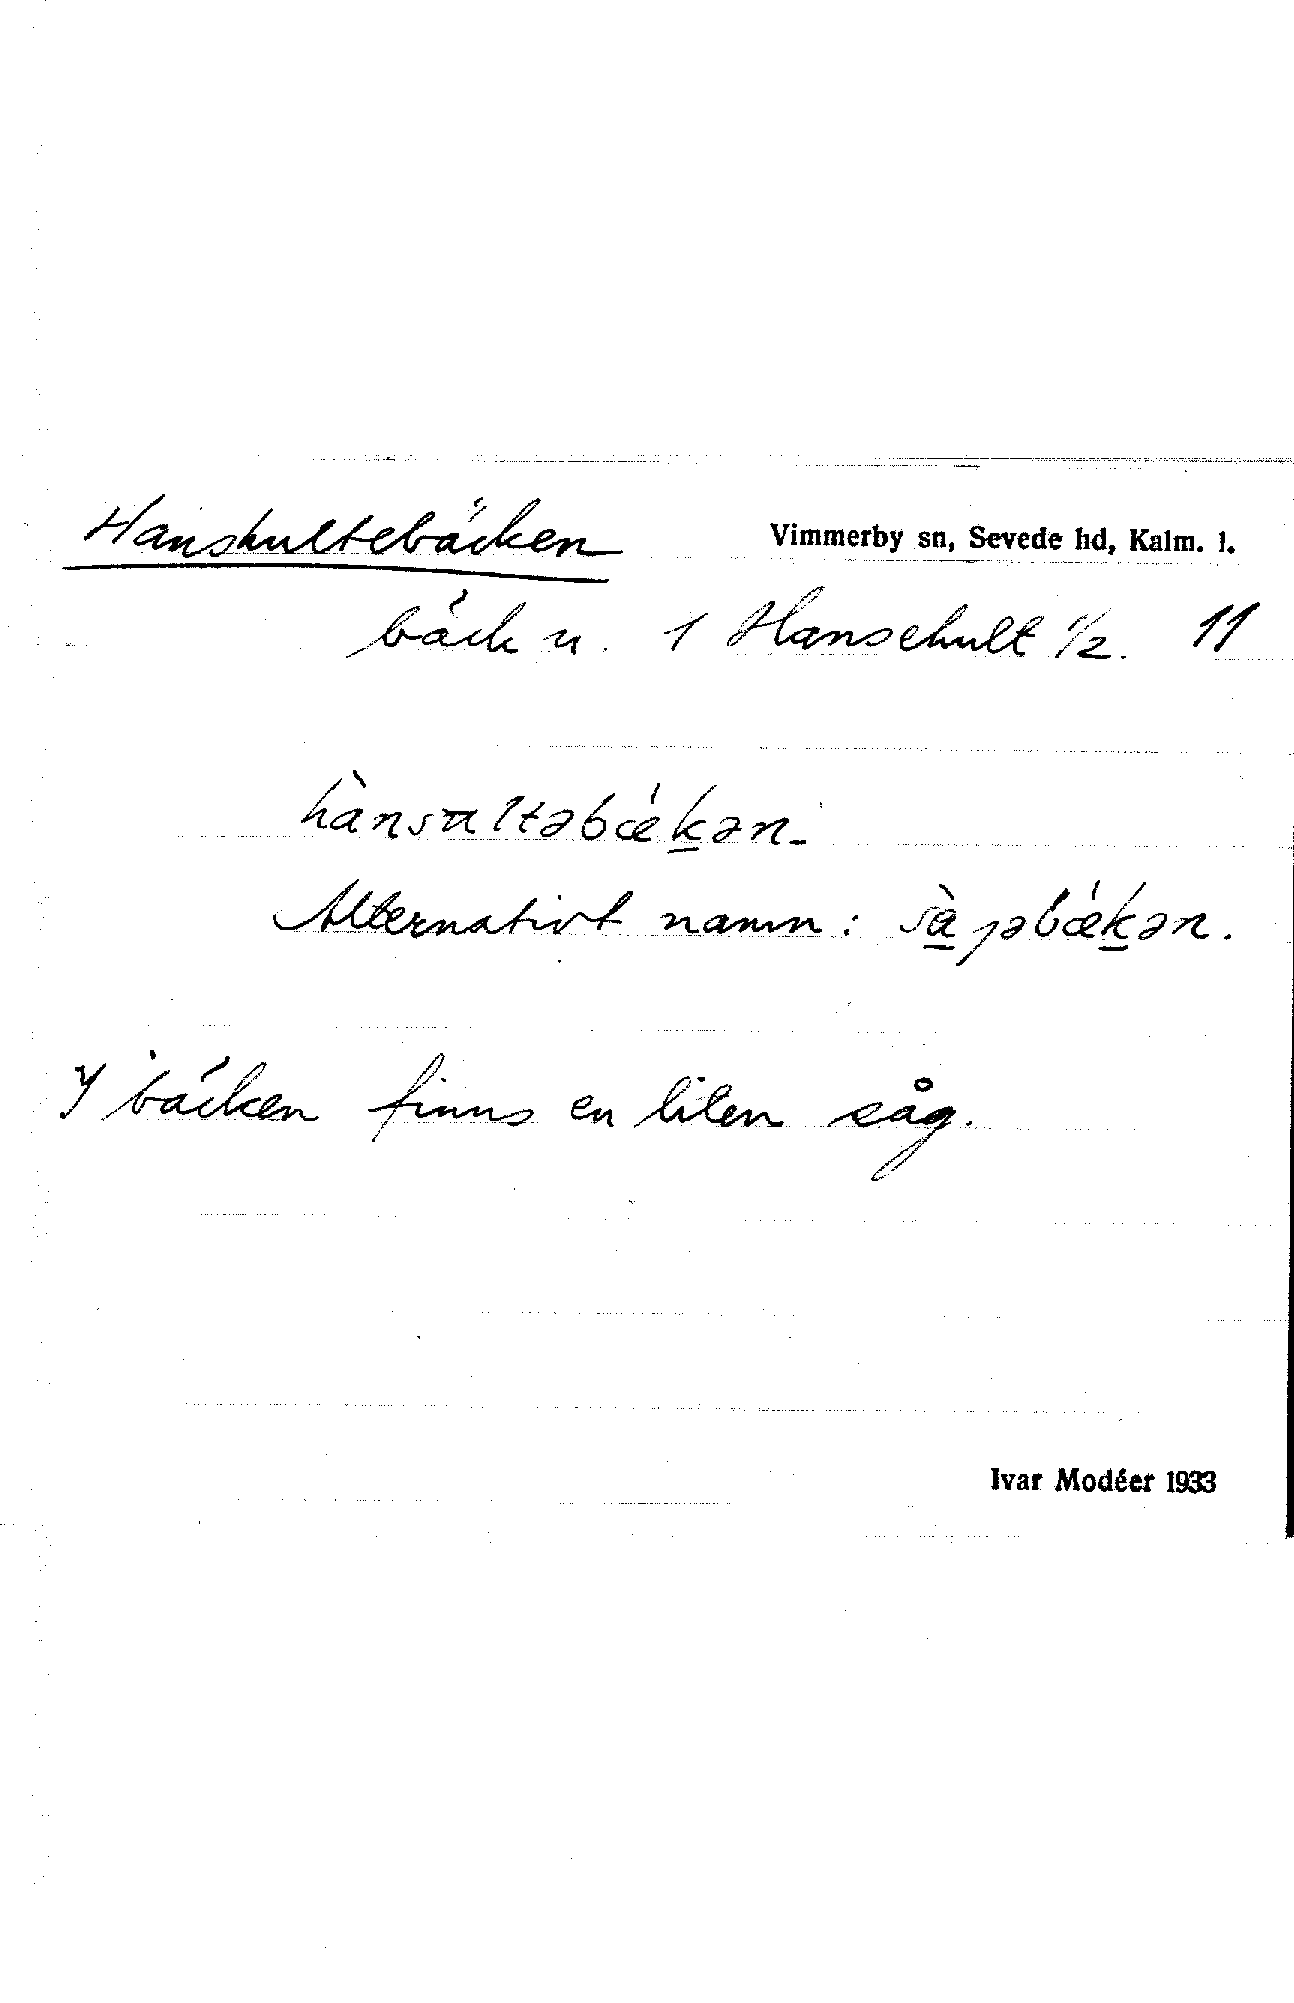 Hanshultebäcken
Vimmerby sn, Sevede hd, Kalm. l.
bäck u. 1 Hanschult 1/2. 11
hànsultəbǽkən.
Alternativt namn: sàgəbǽkən.
I bäcken finns en liten såg.
Ivar Modéer 1933